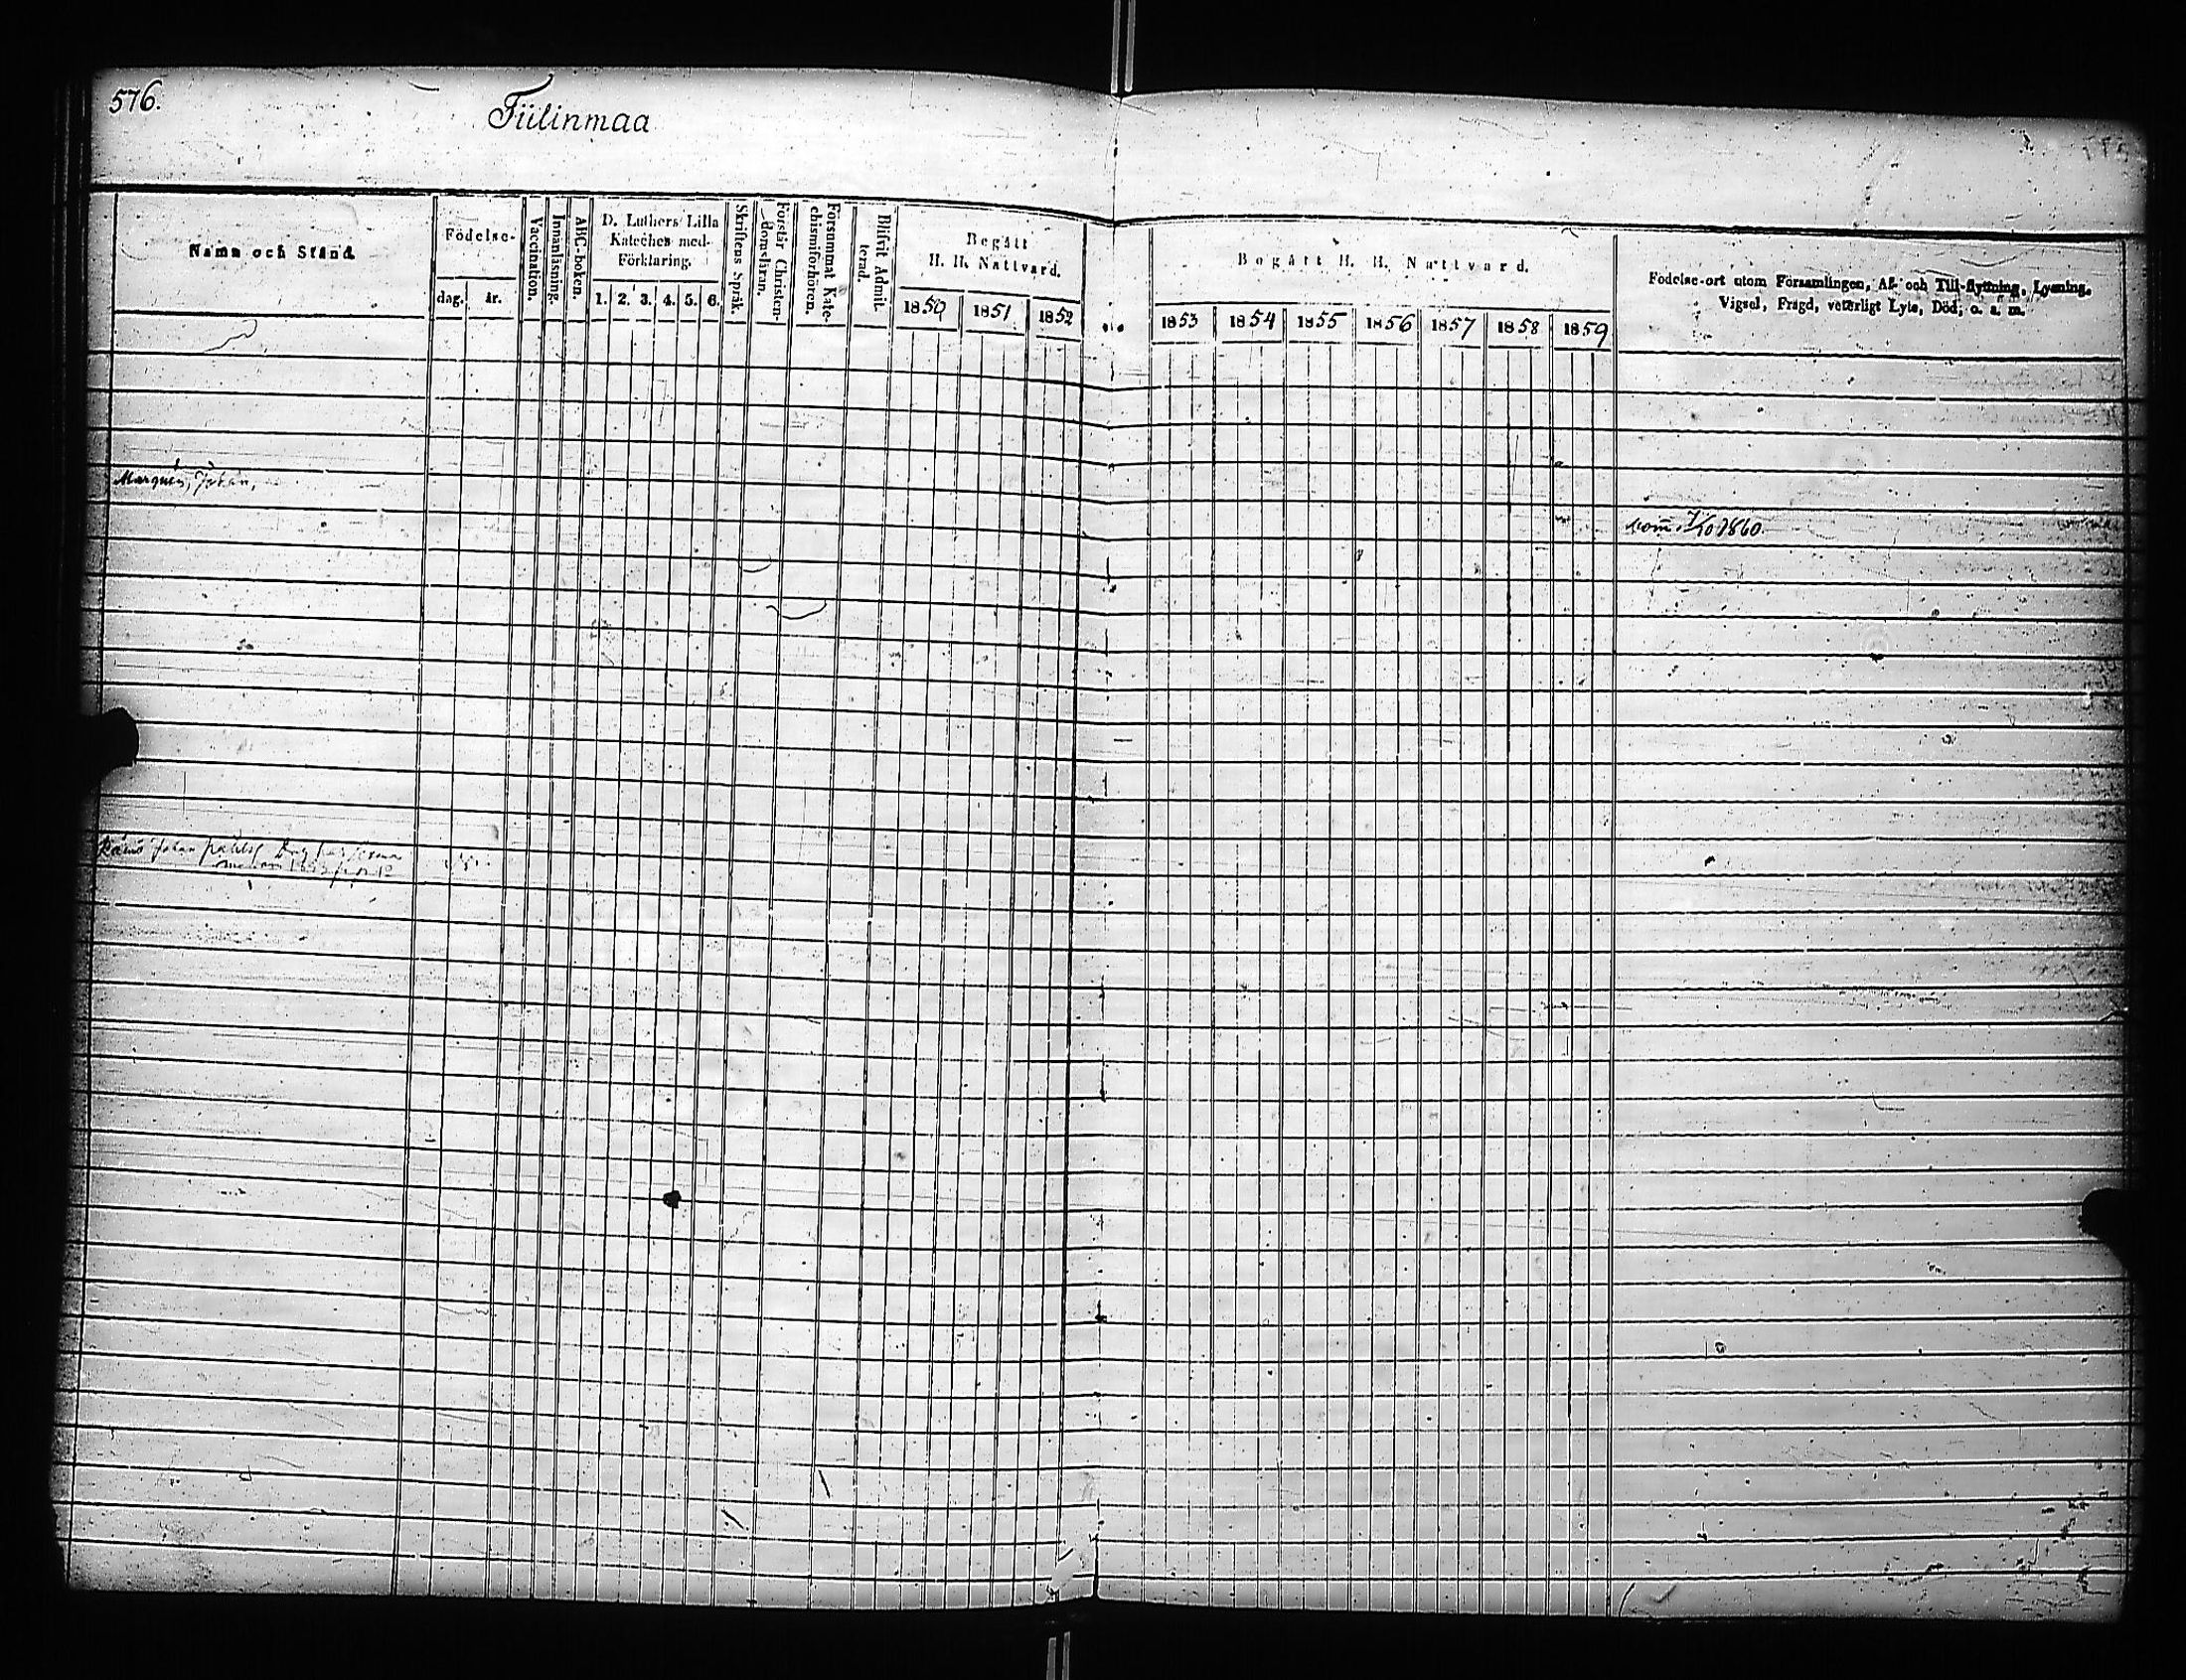 576.
Tiilinmaa
Namn och Stånd.
Födelse-
dag.
år.
Vaccination.
Innanläsning.
ABC-boken.
D. Luthers Lilla
Kateches med
Förklaring.
1. 2. 3. 4. 5. 6.
Skriftens Språk.
Förstår Christen-
domsläran.
Försummat Kate-
chismiförhören.
Blifvit Admit-
terad.
Begått
H. H. Nattvard.
1850 1851 1852
Begått H. H. Nattvard.
1853 1854 1855 1856 1857 1858 1859
Födelse-ort utom Församlingen, Af- och Till-flyttning, Lysning,
Vigsel, Frägd, veterligt Lyte, Död, o. s. m.
Johan,
1860.
Johan